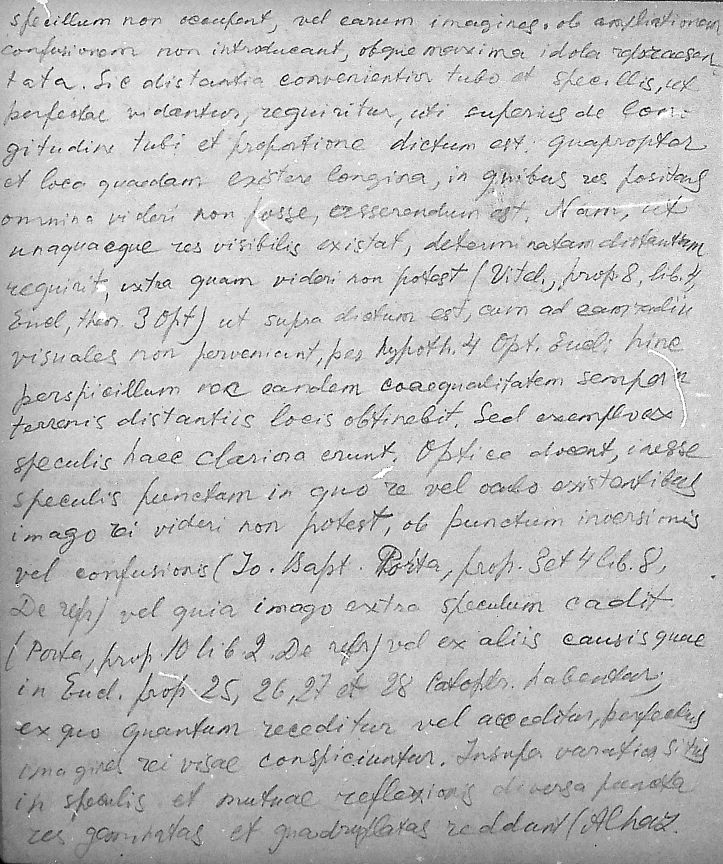 specillum non occupent, vel earum imagines. ob ampliationem
confusionem non introducant, obque maxima idola repraesen
tata. Sic distantia convenientior tubo et specillis, ut
perfectae videantur, requiritur, uti superius de lon-
gitudine tubi et proportione dictum est. quapropter
et loca quaedam existere longina, in quibus res positas
omnino videri non posse, asserendum est. Nam, ut
unaquaeque res visibilis existat, determinatam distantiam
requirit, extra quam videri non potest (Vitel., prop. 8, lib. 4,
Eucl, theor. 3 Opt) ut supra dictum est, cum ad eam radii
visuales non perveniant, per hypoth. 4 Opt. Eucli hinc
perspicillum nec eandem coaequalitatem semper in
terrenis distantiis locis obtinebit. Sed exemplo ex
speculis haec clariora erunt. Optice docent, inesse
speculis punctum in quo re vel oculo existentibus
imago rei videri non potest, ob punctum inversionis
vel confusionis (Io. Bapt. Porta, prop. 3 et 4 lib. 8,
De refr) vel quia imago extra speculum cadit
(Porta, prop. 10 lib. 2. De refr) vel ex aliis causis quae
in Eucl. prop 25, 26, 27 et 28 Catoptr. habentur,
ex quo quantum receditur vel acceditur, perfectius
imagines rei visae conspiciuntur. Insupa variatio situs
in speculis et mutuae reflexionis diversa puncta
res geminatas et quadruplatas reddunt (Alhaz.